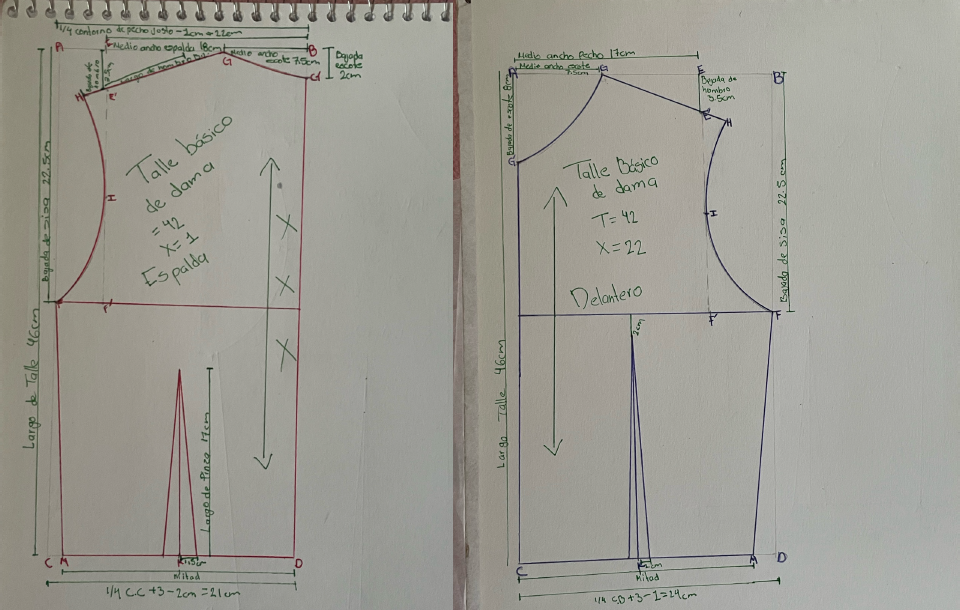 1/4 contorno de pecho justo - 1cm = 22cm
A
Medio ancho espalda 18cm
B
Medio ancho
escote 7.5cm
Bajada
escote
2cm
G
G'
Largo de hombro
Bajada de
hombro
H
E'
Talle básico
de dama
= 42
X= 1
Espalda
I
X
X
X
Bajada de sisa 22.5cm
F
F'
Largo de Talle 46cm
Largo de Pinza 17cm
C
M
K
1.5cm
D
Mitad
1/4 C.C + 3 - 2cm = 21cm
Medio ancho Pecho 17cm
A
Medio ancho escote
7.5cm
G
E
B
Bajada de
hombro
3.5cm
Bajada de escote 8cm
E'
H
G
Talle Básico
de dama
T= 42
X= 22
Delantero
I
Bajada de Sisa 22.5cm
F'
F
2cm
Largo Talle 46cm
C
K
2cm
M
D
Mitad
1/4 CD + 3 - 1 = 24cm